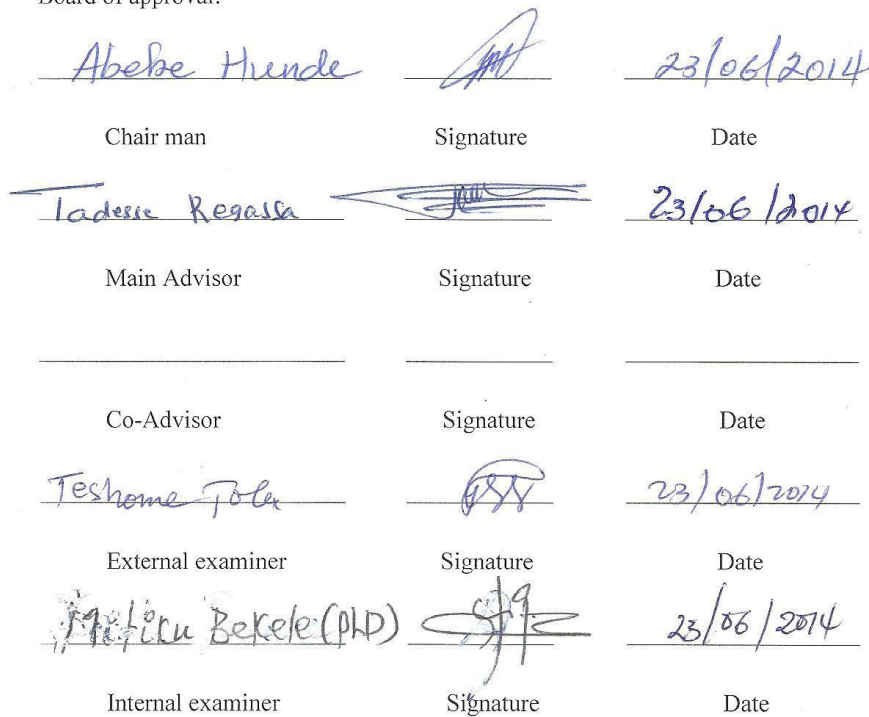 Board of approval:
Abebe Hunde 23/06/2014
Chair man Signature Date
Tadesse Regassa 23/06/2014
Main Advisor Signature Date
Co-Advisor Signature Date
Teshome Tolex 23/06/2014
External examiner Signature Date
Bekele (PhD) 23/06/2014
Internal examiner Signature Date